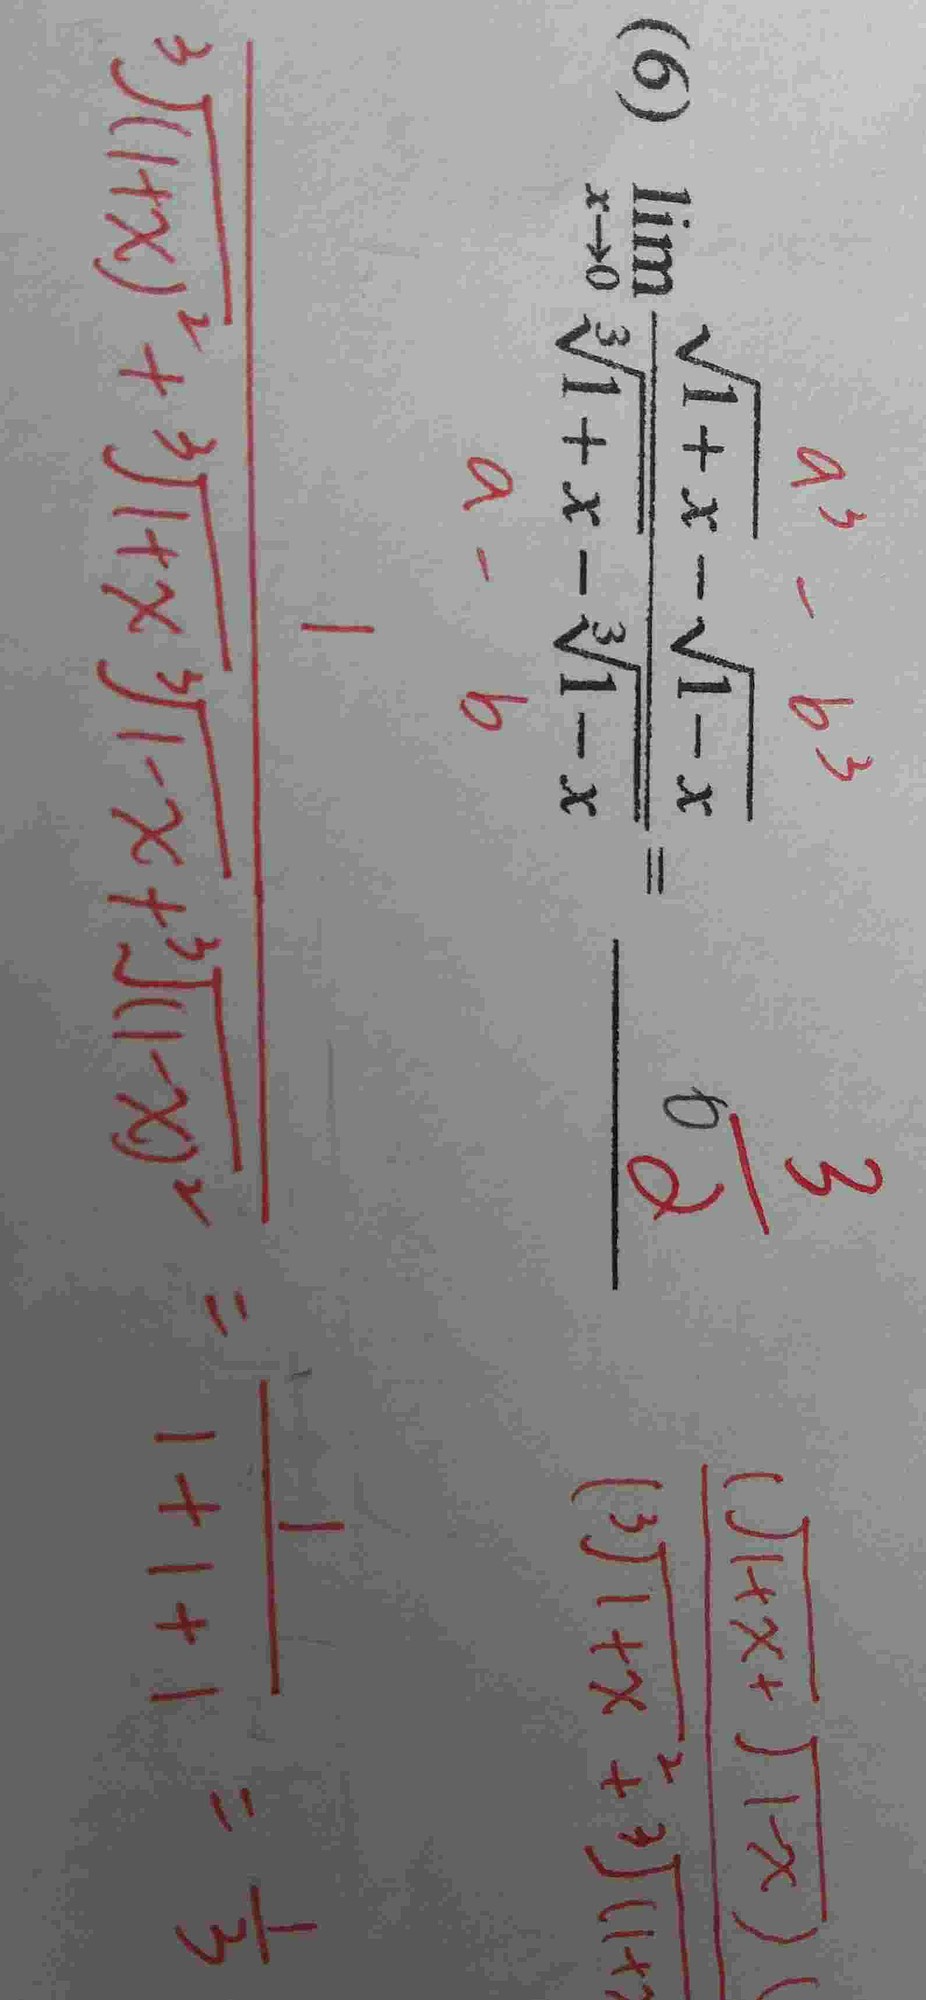 a³ - b³
(6) lim x→0 (√1+x - √1-x)/(³√1+x - ³√1-x) = 3/2
a - b
6
(√1+x + √1-x)(
(³√1+x² + ³√(1+x
1/(³√(1+x)² + ³√1+x ³√1-x + ³√(1-x)²) = 1/(1+1+1) = 1/3